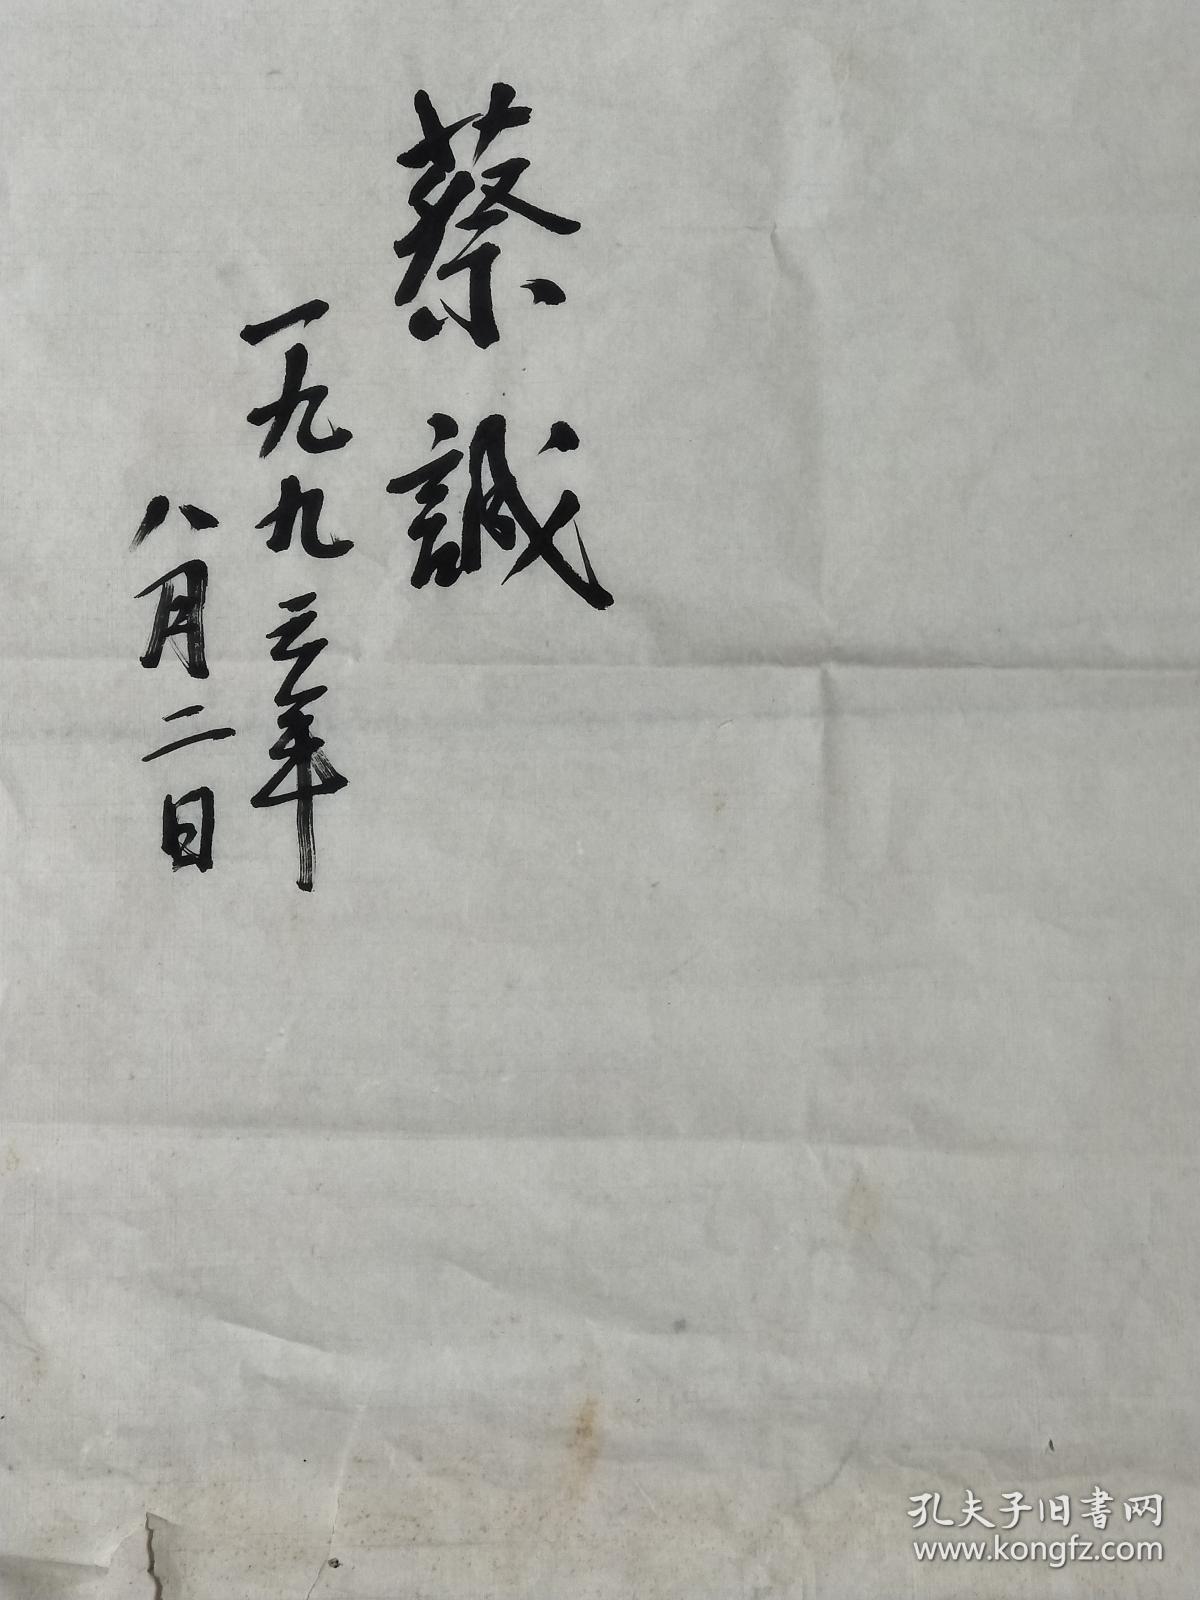 蔡誠
一九九三年
八月二日
孔夫子旧書网
www.kongfz.com